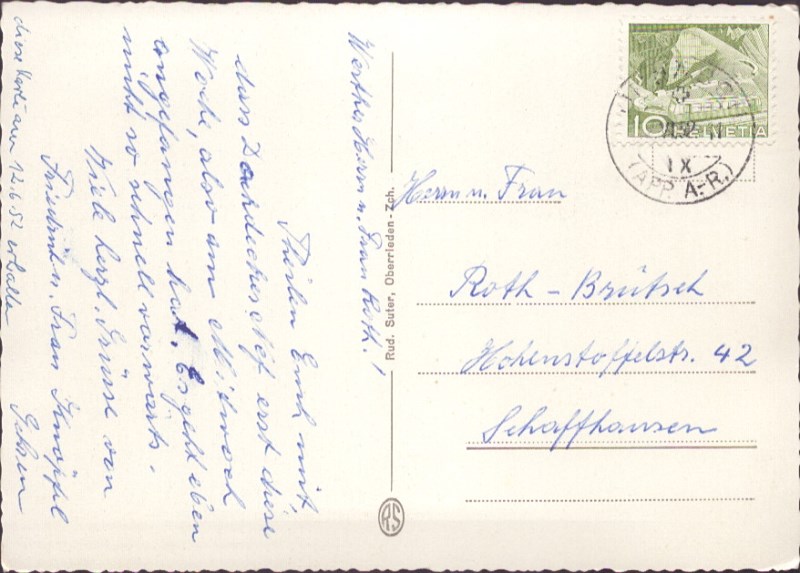 Werther Herrn u. Frau Roth!
Theilen Euch mit
dass Dachdecker Nef erst diese
Woche, also am Mitwoch
angefangen hat. Es geht eben
nicht so schnell vorwärts.
Viele herzl. Grüsse von
Friedrich u. Frau Knöpfel
diese Karte am 12.6.52 erhalten
Rud. Suter, Oberrieden-Zch.
RS
10 HELVETIA
52
IX
(APP. A.-R.)
Herrn u. Frau
Roth - Brütsch
Hohenstoffelstr. 42
Schaffhausen